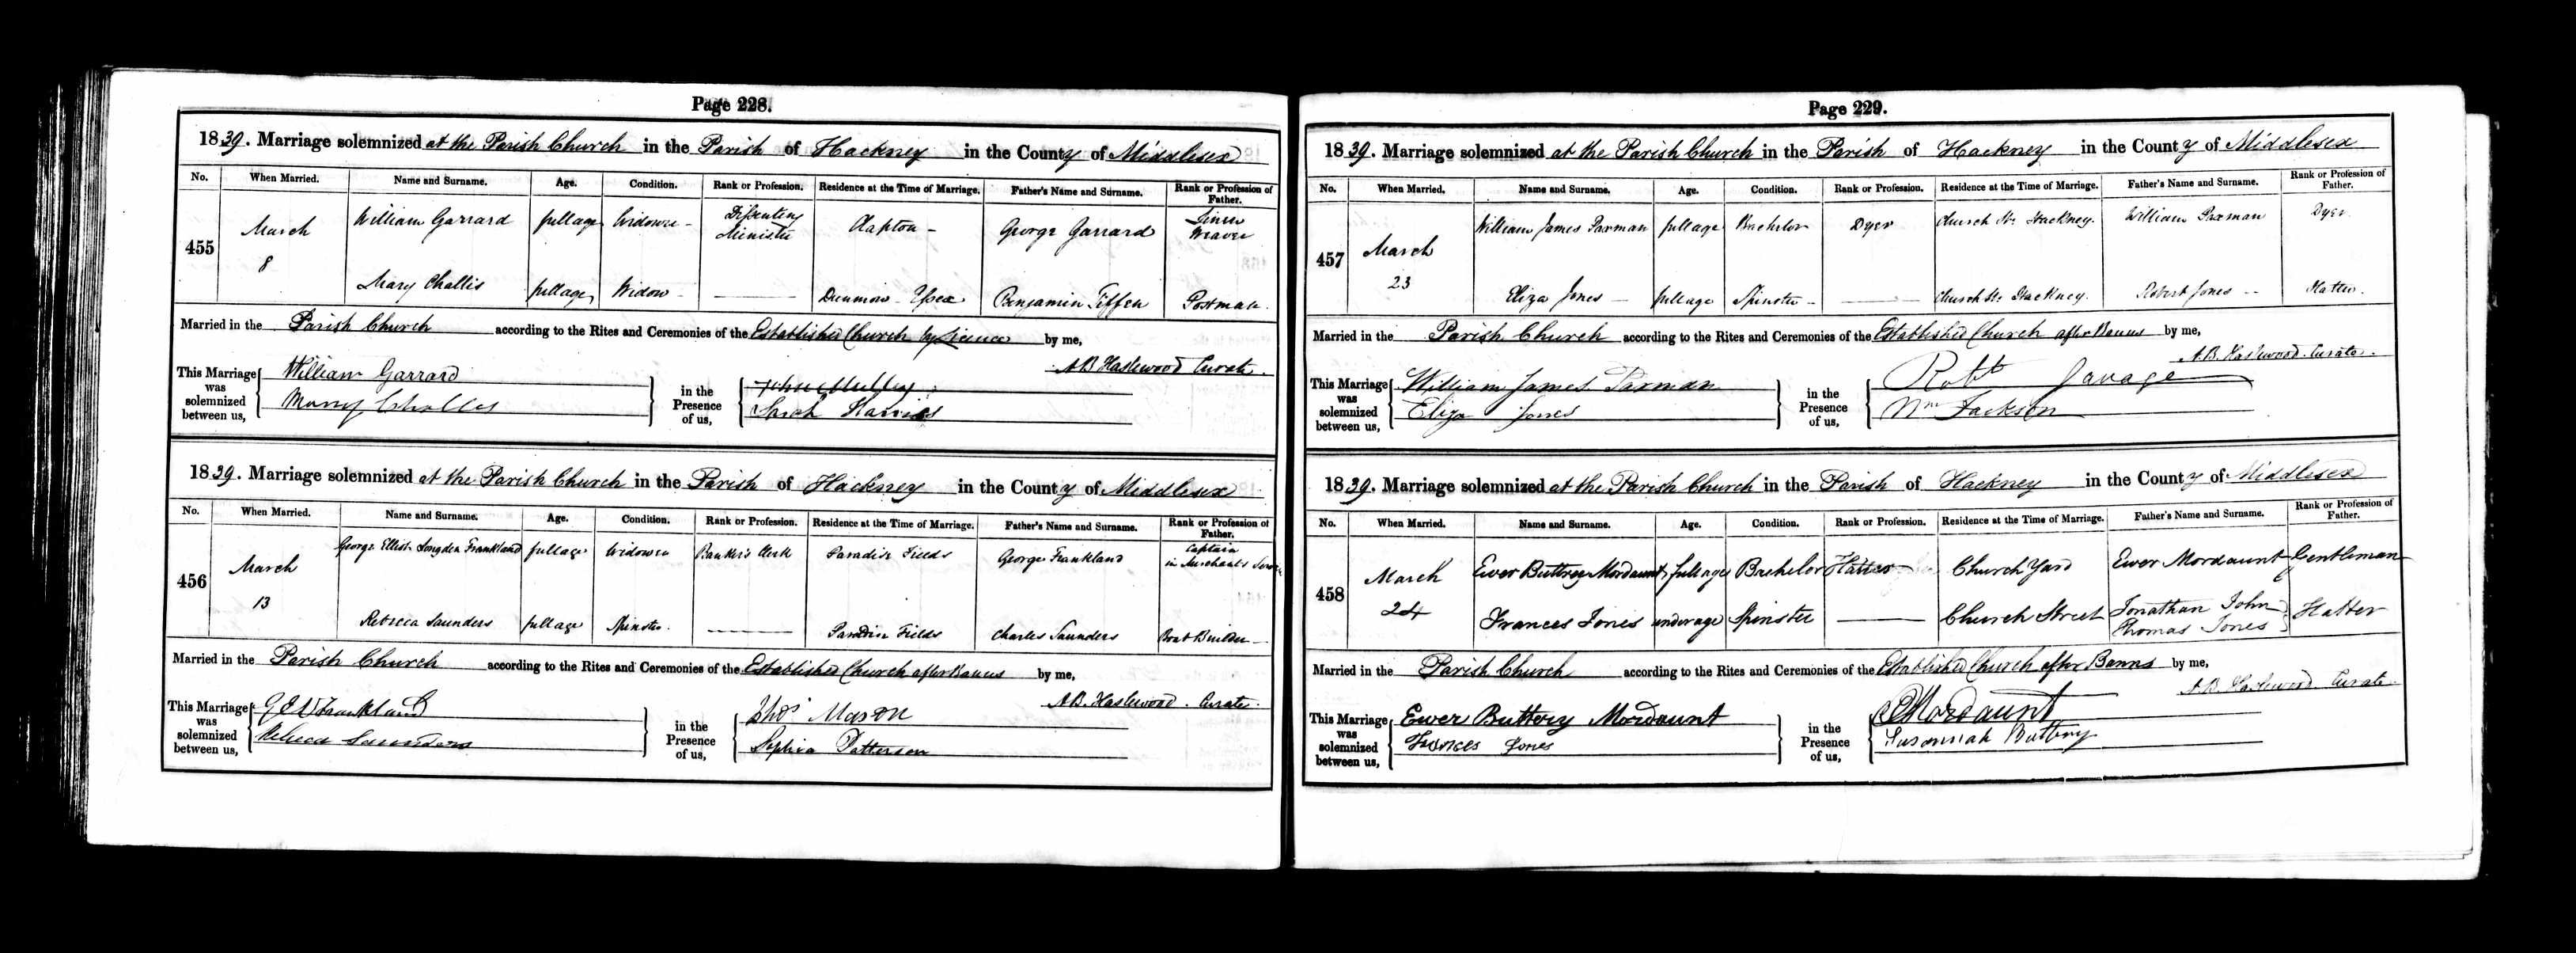 Page 228.
1839. Marriage solemnized at the Parish Church in the Parish of Hackney in the County of Middlesex
No. When Married. Name and Surname. Age. Condition. Rank or Profession. Residence at the Time of Marriage. Father's Name and Surname. Rank or Profession of Father.
455 March 8 William Garrard full age Widower Dissenting Minister Clapton George Garrard Linen Weaver
Mary Challis full age Widow Dunmow Essex Benjamin Tiffen Postman
Married in the Parish Church according to the Rites and Ceremonies of the Established Church by Licence by me,
A B Haslewood Curate.
This Marriage was solemnized between us, William Garrard
Mary Challis
in the Presence of us,
Sarah Harries
1839. Marriage solemnized at the Parish Church in the Parish of Hackney in the County of Middlesex
No. When Married. Name and Surname. Age. Condition. Rank or Profession. Residence at the Time of Marriage. Father's Name and Surname. Rank or Profession of Father.
456 March 13 George Elliott Longden Frankland full age Widower Banker's Clerk Paradise Fields George Frankland Captain in Merchants Service
Rebecca Saunders full age Spinster Paradise Fields Charles Saunders Boat Builder
Married in the Parish Church according to the Rites and Ceremonies of the Established Church after Banns by me,
A B. Haslewood. Curate.
This Marriage was solemnized between us, Frankland
Rebecca Saunders
in the Presence of us, Thos Mason
Sophia Patterson
Page 229.
1839. Marriage solemnized at the Parish Church in the Parish of Hackney in the County of Middlesex
No. When Married. Name and Surname. Age. Condition. Rank or Profession. Residence at the Time of Marriage. Father's Name and Surname. Rank or Profession of Father.
457 March 23 William James Paxman full age Bachelor Dyer Church St. Hackney. William Paxman Dyer
Eliza Jones full age Spinster Church St. Hackney. Robert Jones Hatter.
Married in the Parish Church according to the Rites and Ceremonies of the Established Church after Banns by me,
A.B. Haslewood. Curate.
This Marriage was solemnized between us, William James Paxman
Eliza Jones
in the Presence of us, Robt Savage
Wm Jackson
1839. Marriage solemnized at the Parish Church in the Parish of Hackney in the County of Middlesex
No. When Married. Name and Surname. Age. Condition. Rank or Profession. Residence at the Time of Marriage. Father's Name and Surname. Rank or Profession of Father.
458 March 24 Ewer Buttery Mordaunt full age Bachelor Hatter Church Yard Ewer Mordaunt Gentleman
Frances Jones under age Spinster Church Street Jonathan John Thomas Jones Hatter
Married in the Parish Church according to the Rites and Ceremonies of the Established Church after Banns by me,
A B. Haslewood. Curate.
This Marriage was solemnized between us, Ewer Buttery Mordaunt
Frances Jones
in the Presence of us, Mordaunt
Susannah Buttery